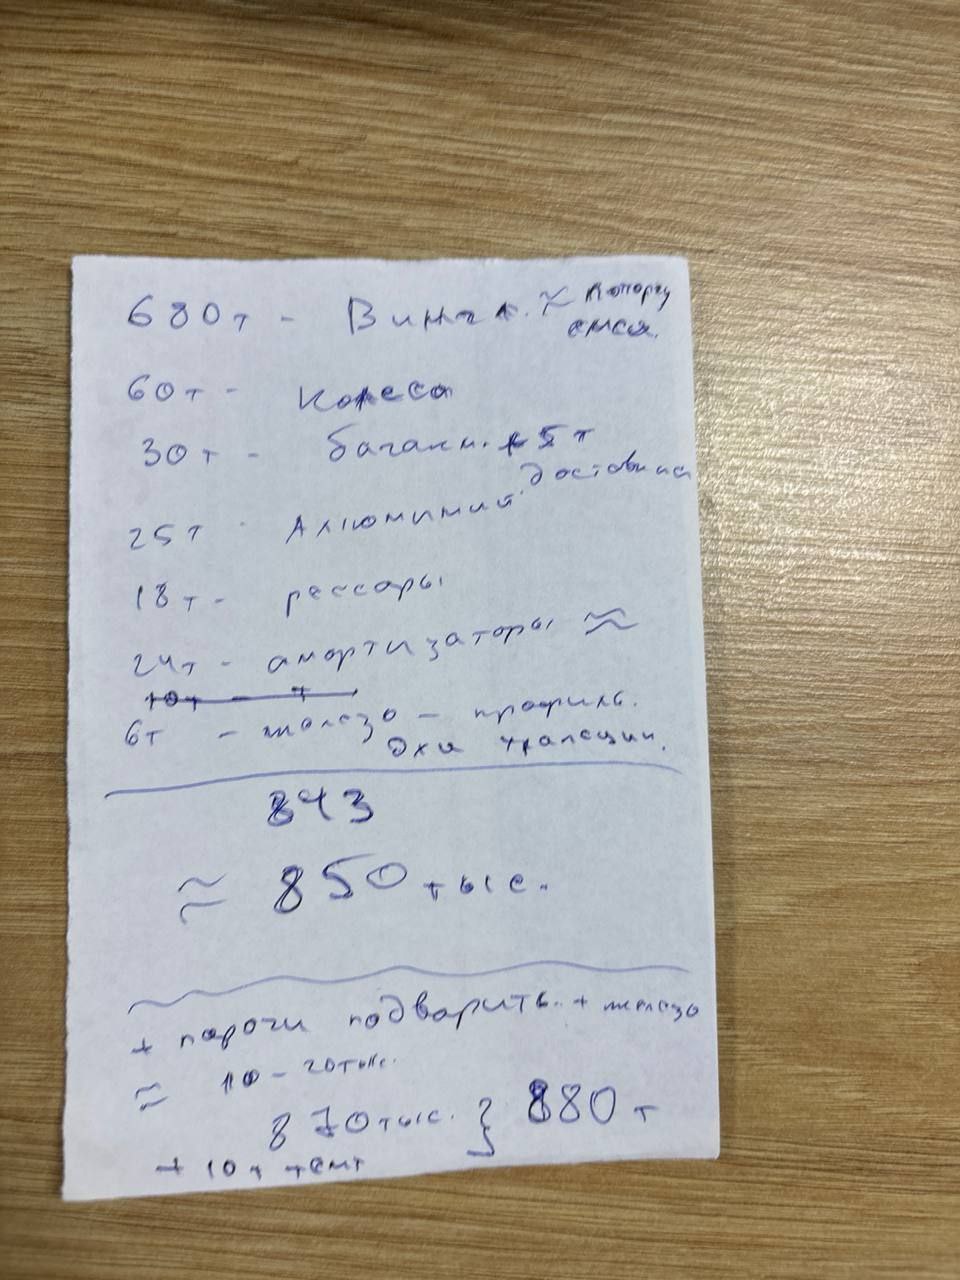 680т - Винтк. ≈ поторгу
емся.
60т - колеса
30т - багажн. + 5 т
доставка
25т - Алюминий
18т - рессоры
24т - амортизаторы ≈
10т -
6т - железо - профиль.
843
≈ 850 тыс.
+ пороги подварить. + железо
≈ 10 - 20 тыс.
870 тыс. } 880 т
+ 10 т тент